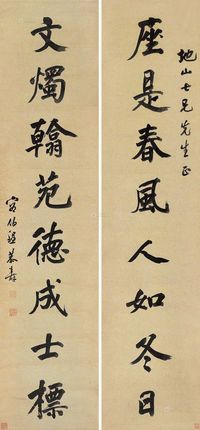 地山七兄先生正
座是春風人如冬日
文燭翰苑德成士標
容伯程恭壽